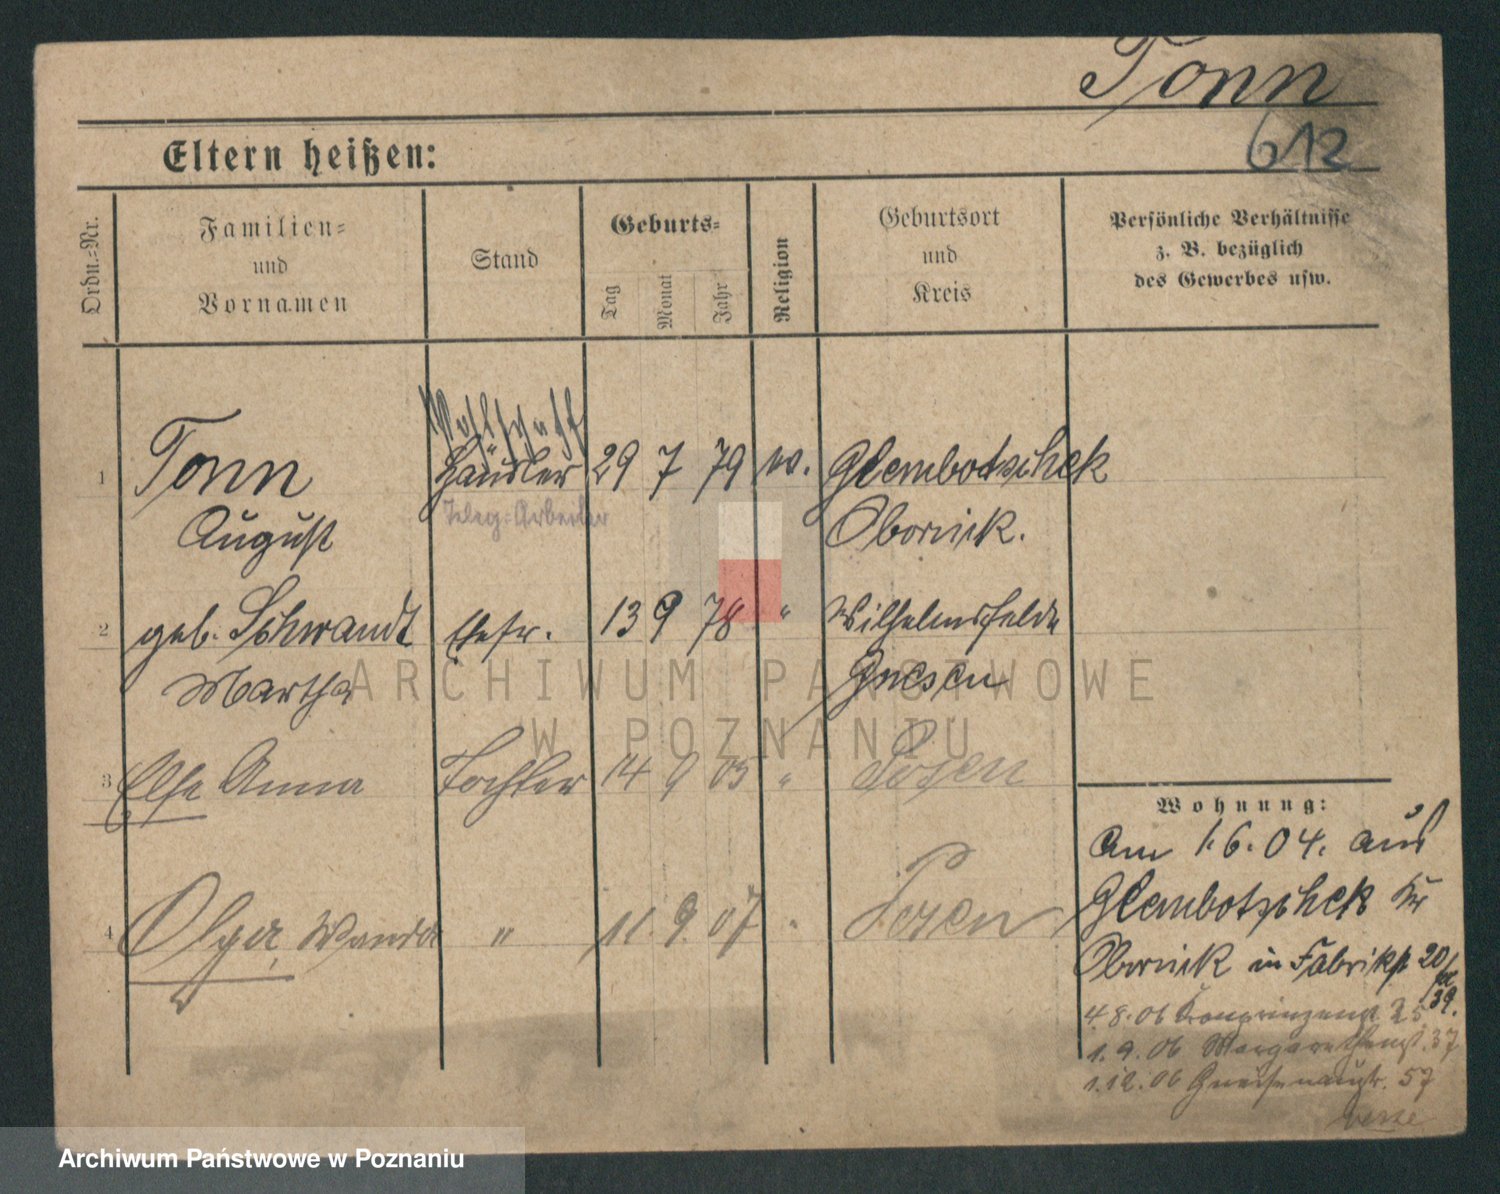 Tonn
612
Eltern heißen:
Ordn.-Nr.
Familien-
und
Vornamen
Stand
Geburts-
Tag
Monat
Jahr
Religion
Geburtsort
und
Kreis
Persönliche Verhältnisse
z. B. bezüglich
des Gewerbes usw.
1 Tonn Häusler 29 7 79 Glembotschek
August Teleg. Arbeiter Obornick.
2 geb. Schwandt Ehefr. 13 9 78 " Wilhelmsfelde
Martha Gnesen
3 Else Anna Tochter 14 9 05 " Posen
4 Olga, Wanda " 11. 9. 07 " Posen
Wohnung:
Am 1.6.04. aus
Glembotschek Kr
Obornick in Fabrikstr 20
39.
4.8.06 Kronprinzenst. 25
1.9.06 Margarethenst. 37
1.12.06 Gneisenaustr. 57
ARCHIWUM PAŃSTWOWE
W POZNANIU
Archiwum Państwowe w Poznaniu